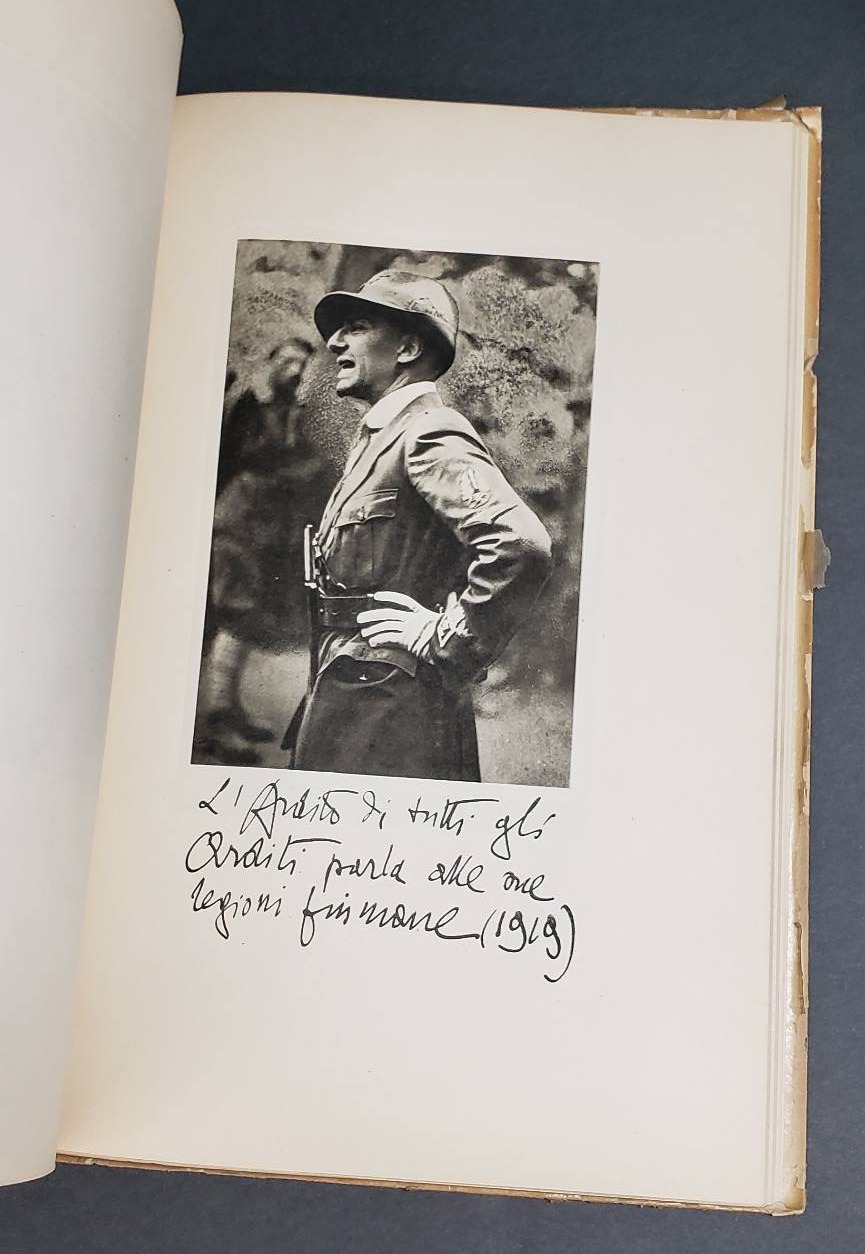 L'Ardito di tutti gli
Arditi parla alle sue
legioni fiumane (1919)